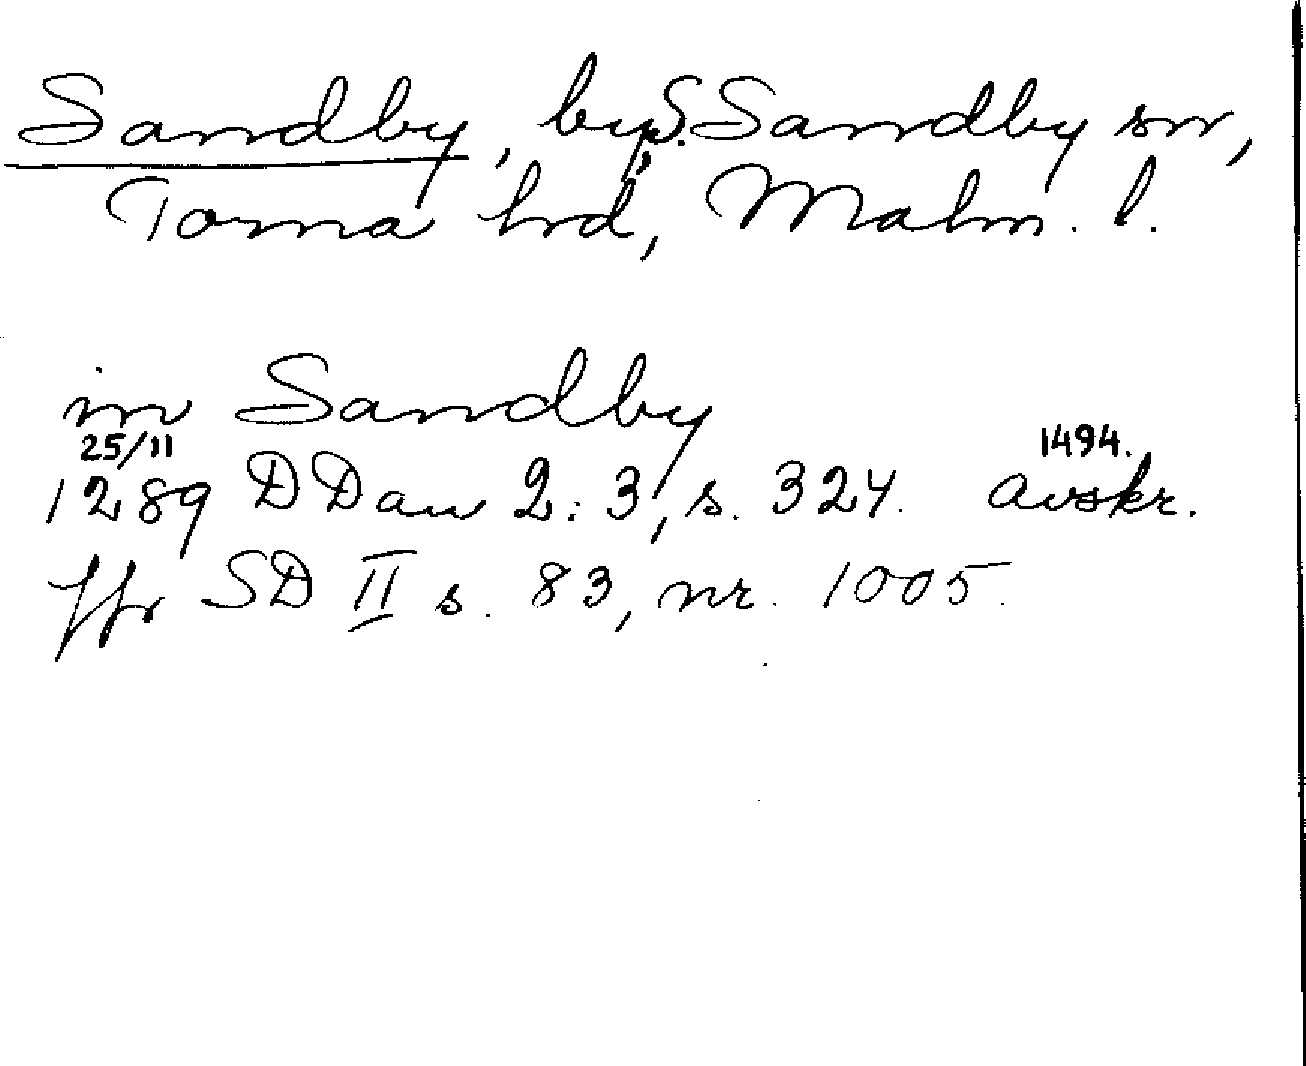 Sandby, by, S. Sandby sn,
Torna hrd, Malm. l.
in Sandby
25/11 1494.
1289 DDan 2:3, s. 324. avskr.
Jfr SD II s. 83, nr. 1005.